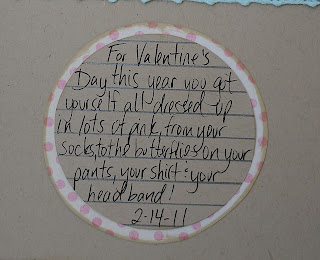 For Valentine's
Day this year you got
yourself all dressed up
in lots of pink, from your
socks, to the butterflies on your
pants, your shirt & your
head band!
2-14-11